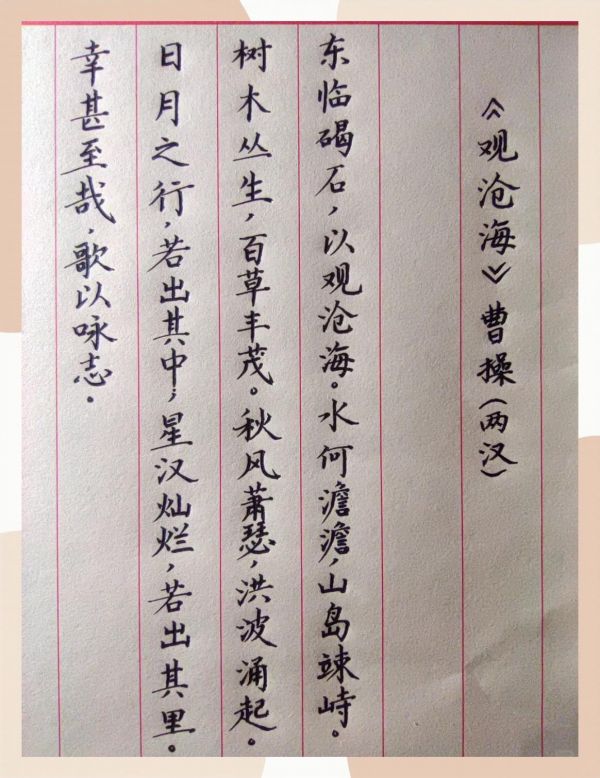 《观沧海》曹操(两汉)
东临碣石,以观沧海。水何澹澹,山岛竦峙。
树木丛生,百草丰茂。秋风萧瑟,洪波涌起。
日月之行,若出其中;星汉灿烂,若出其里。
幸甚至哉,歌以咏志。